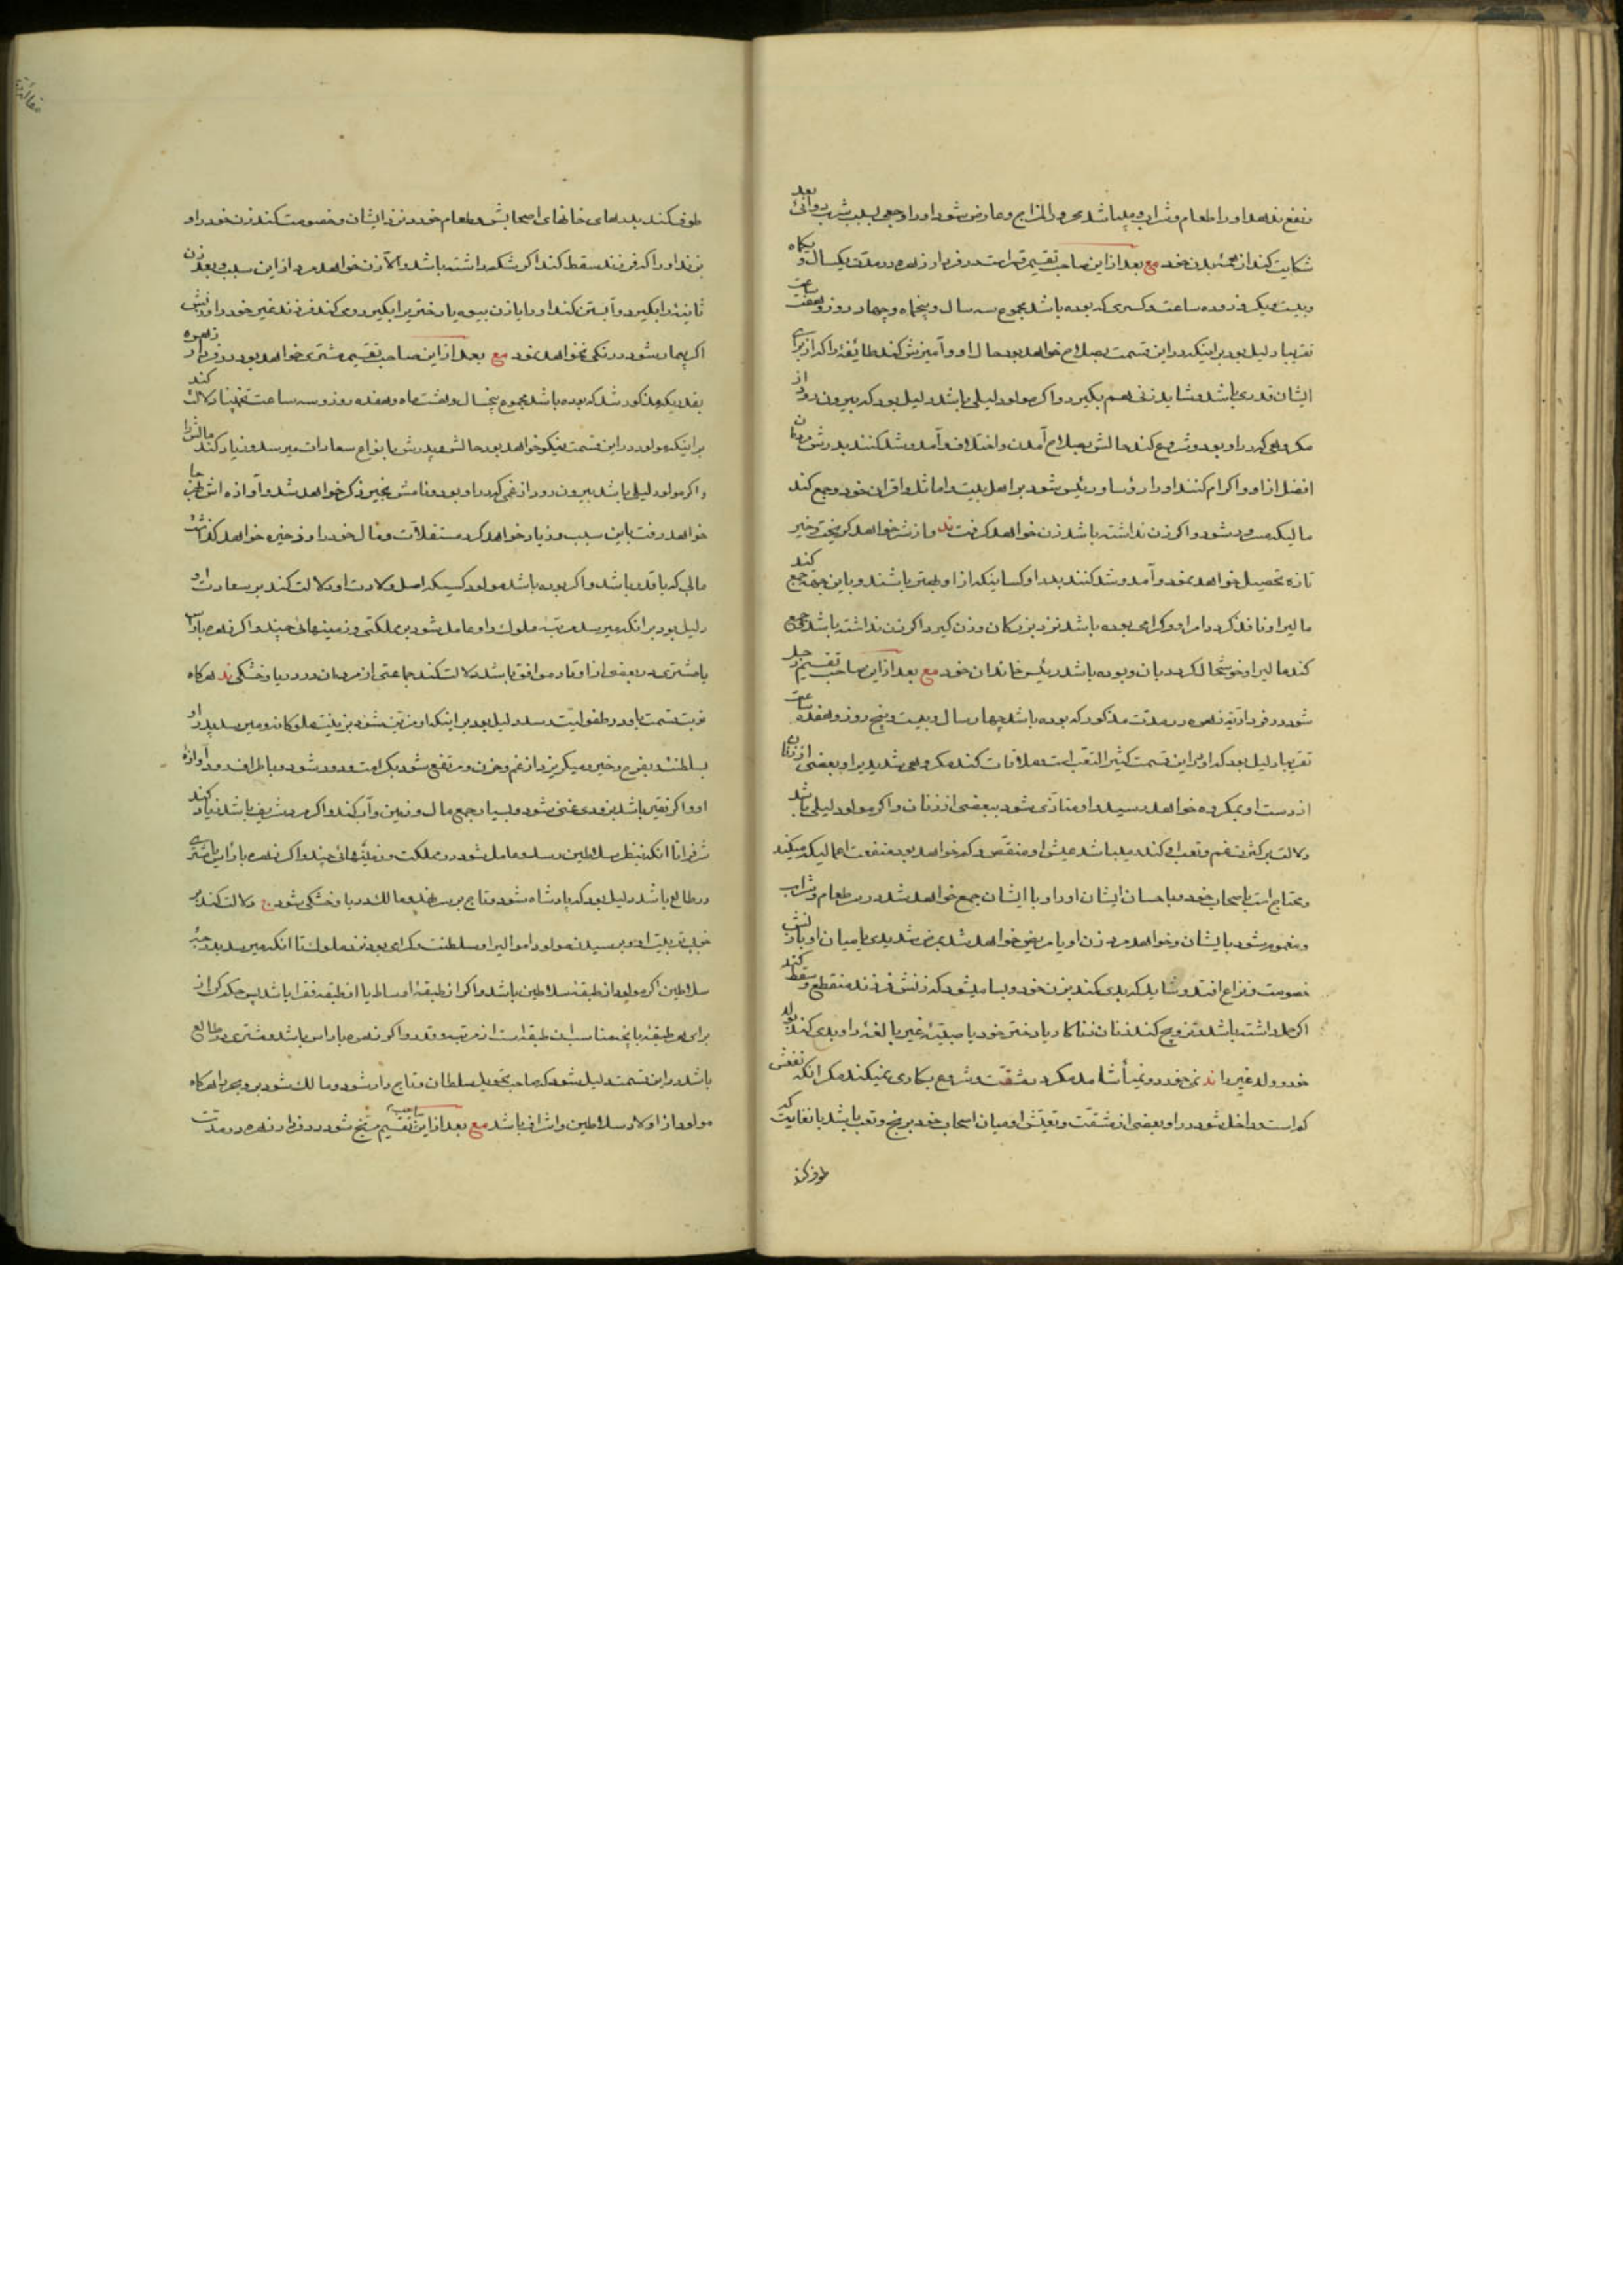 و نفع ندهد او را طعام و شراب و میباشد محرور المزاج و عارض شود او را وجعی بسبب شرب دوائی بعد
شکایت کند از همهٔ بدن خود مع بعد از این صاحب تقسیم قمر است در فردار زهره در مدّت یکسال و یکماه
و بیست و یک روز و ده ساعت و کسری که بوده باشد مجموع سه سال و پنجماه و چهار روز و هفت ساعت
تقریبا دلیل بود بر اینکه در این قسمت بصلاح خواهد بود حال او و آمیزش کند طایفهٔ را که از برای
ایشان قدری باشد و شاید زنی هم بگیرد و اگر مولود لیلی باشد دلیل بود که بیرون رود از
مکروهی که در او بود و شروع کند حالش بصلاح آمدن و اختلاف و آمد و شد کنند بدرش مردمان
افضل از او و اکرام کنند او را رؤسا و رئیس شود بر اهل بیت و اماثل و اقران خود و جمع کند
مالیکه مسرور شود و اگر زن نداشته باشد زن خواهد گرفت
تازه تحصیل خواهد نمود و آمد و شد کنند بدر او کسانیکه از او بهتر باشند و باین جهة جمع کند
مالیرا و نافذ گردد امر او و گرامی بوده باشد نزد بزرگان و زن گیرد اگر زن نداشته باشد و جمع
کند مالیرا و خوشحال گردد بان و بوده باشد رئیس خاندان خود مع بعد از این صاحب تقسیم زحل
شود در فرداریّهٔ زهره در مدّت مذکور که بوده باشد چهار سال و بیست و پنج روز و هفده ساعت
تقریبا دلیل بود که او در این قسمت کثیر التعب است ملاقات کند مکروهی شدید بر او بعضی از زنان
از دست او و مکروه خواهد رسید و او متأذّی شود ببعضی از زنان و اگر مولود لیلی باشد
دلالت بر کثرت غم و تعب او کند و میباشد عیش او منقّص و کم خواهد بود منفعت اعمالیکه میکند
و محتاج است باصحاب خود و باحسان ایشان او را و با ایشان جمع خواهد شد در سر طعام و شراب
و مغموم شود بایشان و خواهد مرد زن او یا مریض خواهد شد بمرض شدیدی یا میان او و با زنش
خصومت و نزاع افتد و شاید که بدی کند بزن خود و بسا میشود که زنش فرزند منقطع و سقط کند
اگر حمل داشته باشد و تزویج کند زنان زناکار یا دختر خود یا صبیّهٔ غیر بالغه را و بدی کند بولد
خود و ولد غیر را
که است و داخل شود در او بعضی از مشقّت و تعیّش او میان اصحاب خود برنج و تعب باشد بانغایت که
طوف کند
طوف کند بدرهای خانهای اصحابش و طعام خورد نزد ایشان و خصومت کند زن خود را و
بزند او را که فرزند سقط کند اگر شکم داشته باشد و الّا زن خواهد مرد از این سبب و بعد زن
ثانیهٔ را بگیرد و آبستن کند او را یا زن بیوه یا دختریرا بگیرد و
اگر بیمار شود درنگی نخواهد نمود مع بعد از این صاحب تقسیم مشتری خواهد بود در فردار زهره
بقدریکه مذکور شد که بوده باشد مجموع پنجسال و هشت ماه و هفده روز و سه ساعت تخمینا دلالت کند
بر اینکه مولود در این قسمت نیکو خواهد بود حالش و پدرش بانواع سعادات میرسد و زیاد کند مالش را
و اگر مولود لیلی باشد بیرون رود از غمی که در او بود و نامش بخیر ذکر خواهد شد و آوازه اش بهمه جا
خواهد رفت باین سبب و زیاد خواهد کرد مستغلّات و مال خود را و ذخیره خواهد گذاشت
مالی که باقدر باشد و اگر بوده باشد مولود کسیکه اصل ولادت او دلالت کند بر سعادت او
دلیل بود بر انکه میرسد بمرتبهٔ ملوک و او عامل شود بر مملکتی و زمینهائی چند و اگر زهره
با مشتری در بعضی از اوتاد موافق باشد دلالت کند جماعتی از مردمان در دریا و خشکی ند هرگاه
نوبت قسمت باو در طفولیّت رسد دلیل بود بر اینکه او مزیّن شود بزینت ملوکانه و میرسد پدر او
بسلطنت و بفرح و خیر و میگریزد از غم و حزن و مرتفع شود بکرامت و دود شود و باطراف رود آوازهٔ
او و اگر فقیر باشد بزودی غنی شود و بسیار جمع مال و زمین و آب کند و اگر مرد شریف باشد زیاد کند
شرف را تا انکه بنظر سلاطین رسد و عامل شود در مملکت و زمینهائی چند و اگر زهره با رأس یا مشتری
در طالع باشد دلیل بود که پادشاه شود و تاج بر سر نهد و مالک دریا و خشکی شود
سلاطین اگر مولود از طبقهٔ سلاطین باشد و اگر از طبقهٔ اوساط یا از طبقهٔ فقرا باشد پس حکم کن از
برای هر طبقه بانچه مناسب ان طبقه است از مرتبه و قدر و اگر زهره با رأس باشد و مشتری در طالع
باشد در این قسمت دلیل شود که صاحب تحویل سلطان و تاج دار شود و مالک شود بر و بحر را هرگاه
مولود از اولاد سلاطین و اشراف باشد مع بعد از این صاحب تقسیم مرّیخ شود در فردار زهره در مدّت